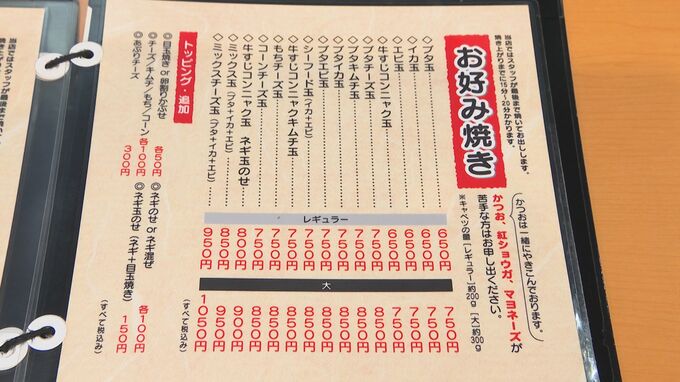 当店ではスタッフが最後まで焼いてお出しします。
焼き上がりまでに15分～20分かかります。
お好み焼き
かつおは一緒にやきこんでおります。
かつお、紅ショウガ、マヨネーズが
苦手な方はお申し出ください。
※キャベツの量 [レギュラー]約200g [大]約300g
レギュラー
大
◇ブタ玉 650円 750円
◇イカ玉 650円 750円
◇エビ玉 650円 750円
◇牛すじコンニャク玉 750円 850円
◇ブタチーズ玉 750円 850円
◇ブタキムチ玉 750円 850円
◇ブタイカ玉 750円 850円
◇ブタエビ玉 750円 850円
◇シーフード玉(イカ+エビ) 750円 850円
◇牛すじコンニャクキムチ玉 750円 850円
◇もちチーズ玉 750円 850円
◇コーンチーズ玉 750円 850円
◇牛すじコンニャク玉 ネギ玉のせ 800円 900円
◇ミックス玉(ブタ+イカ+エビ) 850円 950円
◇ミックスチーズ玉(ブタ+イカ+エビ) 950円 1050円
(すべて税込み)
トッピング・追加
◎目玉焼き or 卵割りかぶせ 各50円
◎チーズ/キムチ/もち/コーン 各100円
◎あぶりチーズ 300円
◎ネギのせ or ネギ混ぜ 各100円
◎ネギ玉のせ(ネギ+目玉焼き) 150円
(すべて税込み)